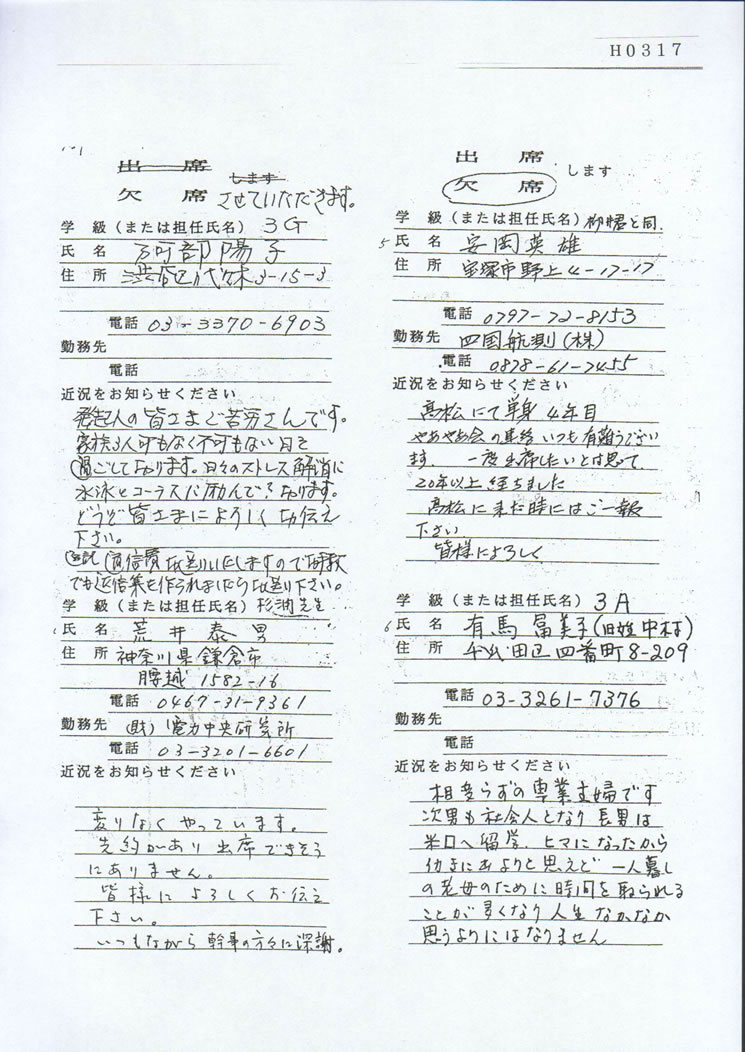 H0317
出 席
します
欠 席 させていただきます。
学 級（または担任氏名）3G
氏 名 阿部陽子
住 所 渋谷区代々木3-15-3
電話 03-3370-6903
勤務先
電話
近況をお知らせください
発起人の皆さまご苦労さんです。
家族3人可もなく不可もない日を
過ごしております。日々のストレス解消に
水泳とコーラスに励んでおります。
どうぞ皆さまによろしくお伝え
下さい。
追記 通信費お送りいたしますので
でも返信集を作られましたらお送り下さい。
学 級（または担任氏名）杉浦先生
氏 名 荒井泰男
住 所 神奈川県鎌倉市
腰越 1582-16
電話 0467-31-9361
勤務先 (財)電力中央研究所
電話 03-3201-6601
近況をお知らせください
変りなくやっています。
先約があり出席できそう
にありません。
皆様によろしくお伝え
下さい。
いつもながら幹事の方々に深謝。
出 席
します
欠 席
学 級（または担任氏名）
5 氏 名 安岡英雄
住 所 宝塚市野上4-17-17
電話 0797-72-8153
勤務先 四国航測(株)
電話 0878-61-7455
近況をお知らせください
高松にて単身4年目
やあやあ会の連絡いつも有難うござい
ます. 一度出席したいとは思って
20年以上経ちました
高松に来た時にはご一報
下さい
皆様によろしく
学 級（または担任氏名）3A
6 氏 名 有馬冨美子(旧姓中村)
住 所 千代田区四番町8-209
電話 03-3261-7376
勤務先
電話
近況をお知らせください
相変らずの専業主婦です
次男も社会人となり長男は
米国へ留学. ヒマになったから
働きに出ようと思えど一人暮し
の老母のために時間を取られる
ことが多くなり人生なかなか
思うようにはなりません